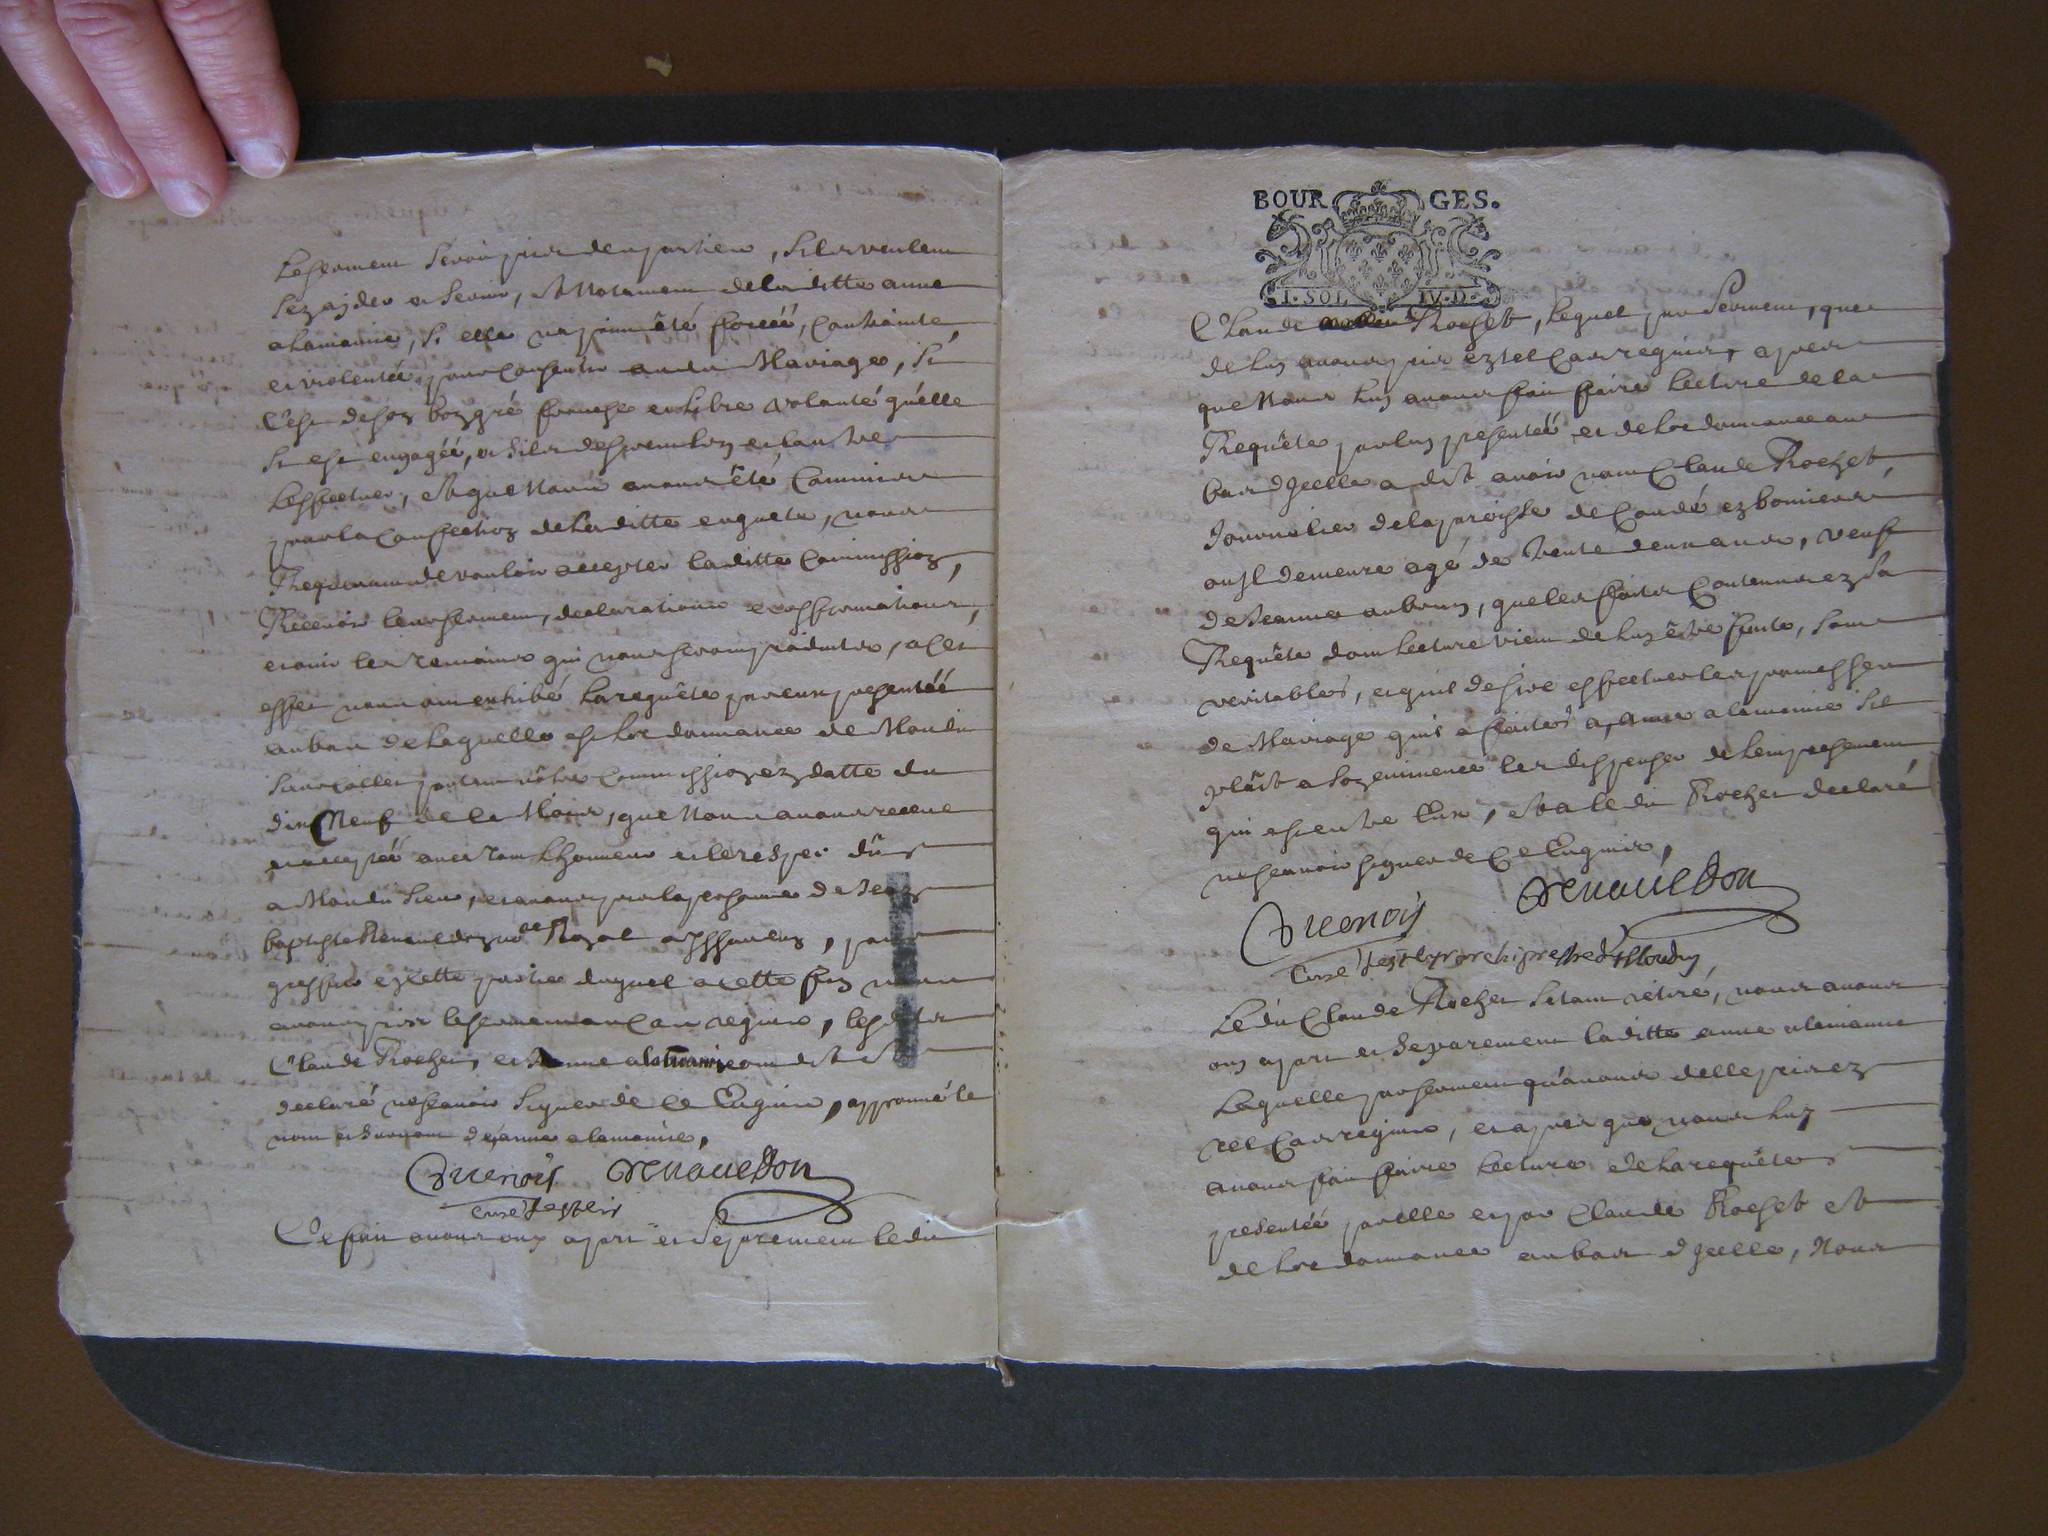 le serment seroit pris des parties, si les veulent
sezayder et servir, et notamment de laditte anne
alamainie, si elle na point été forcéé, contrainte
et violentéé pour consentir audit Mariage, si
C'est de son bon gré franche et libre volonté qu'elle
si est engagéé, et si les
L'effectuer, et que Nous avons été Commis
pour la Confection de laditte enquete, nous
Requerant de vouloir accepter laditte Commission,
Recevoir leur serment, declarations et affirmations,
et ouir les temoins qui nous seront produits, a cet
effet nous ont exhibé la requête par eux presentéé
au bas de laquelle est Lordonnance de Mondit
sieur portant nôtre Commission en datte du
dix Neuf de ce Mois, que Nous avons receue
et acceptéé avec tout L'honneur et le respec dû
a Mondit sieur, et avons pris la personne de Jean
baptiste Renauldon no.re Royal a Issoudun, pour
greffier en cette partie duquel a cette fin nous
avons pris le serment au Cas requis, lesdits
Claude Rochet, et anne alamainie ont dit et
declaré ne scavoir signer de ce Enquis, approuvé le
nom et surnom d'anne alamainie.
Guenois renaueldon
Curé
Ce fait avons ouy apart et séparement ledit
BOURGES.
I. SOL IV. D.
Claude Rochet, lequel par serment, que
de luy avons pris en tel Cas requis, apres
que Nous luy avons fait faire lecture de la
Requête par luy presentéé et de Lordonnance au
bas d'Icelle a dit avoir nom Claude Rochet,
Journalier de la paroisse de Condé
ou Il demeure agé de trente deux ans, veuf
de Jeanne aubrun, que les faits Contenus en sa
Requête dont lecture vient de luy être faite, sont
veritables, et qu'il desire effectuer les promesses
de Mariage qu'il a faites a anne alamainie s'il
plaît a son eminence les dispenser de L'empeschement
qui est entre Eux, et a ledit Rochet declaré
ne scavoir signer de Ce Enquis.
Guenois renaueldon
Curé archiprestre d'Issoudun
Ledit Claude Rochet s'etant retiré, nous avons
ouy apart et separement laditte anne alamainie
Laquelle par serment qu'avons d'elle pris en
tel Cas requis, et apres que nous luy
avons fait faire Lecture de la requête
presentéé par elle et par Claude Rochet et
de Lordonnance au bas d'Icelle, Nous